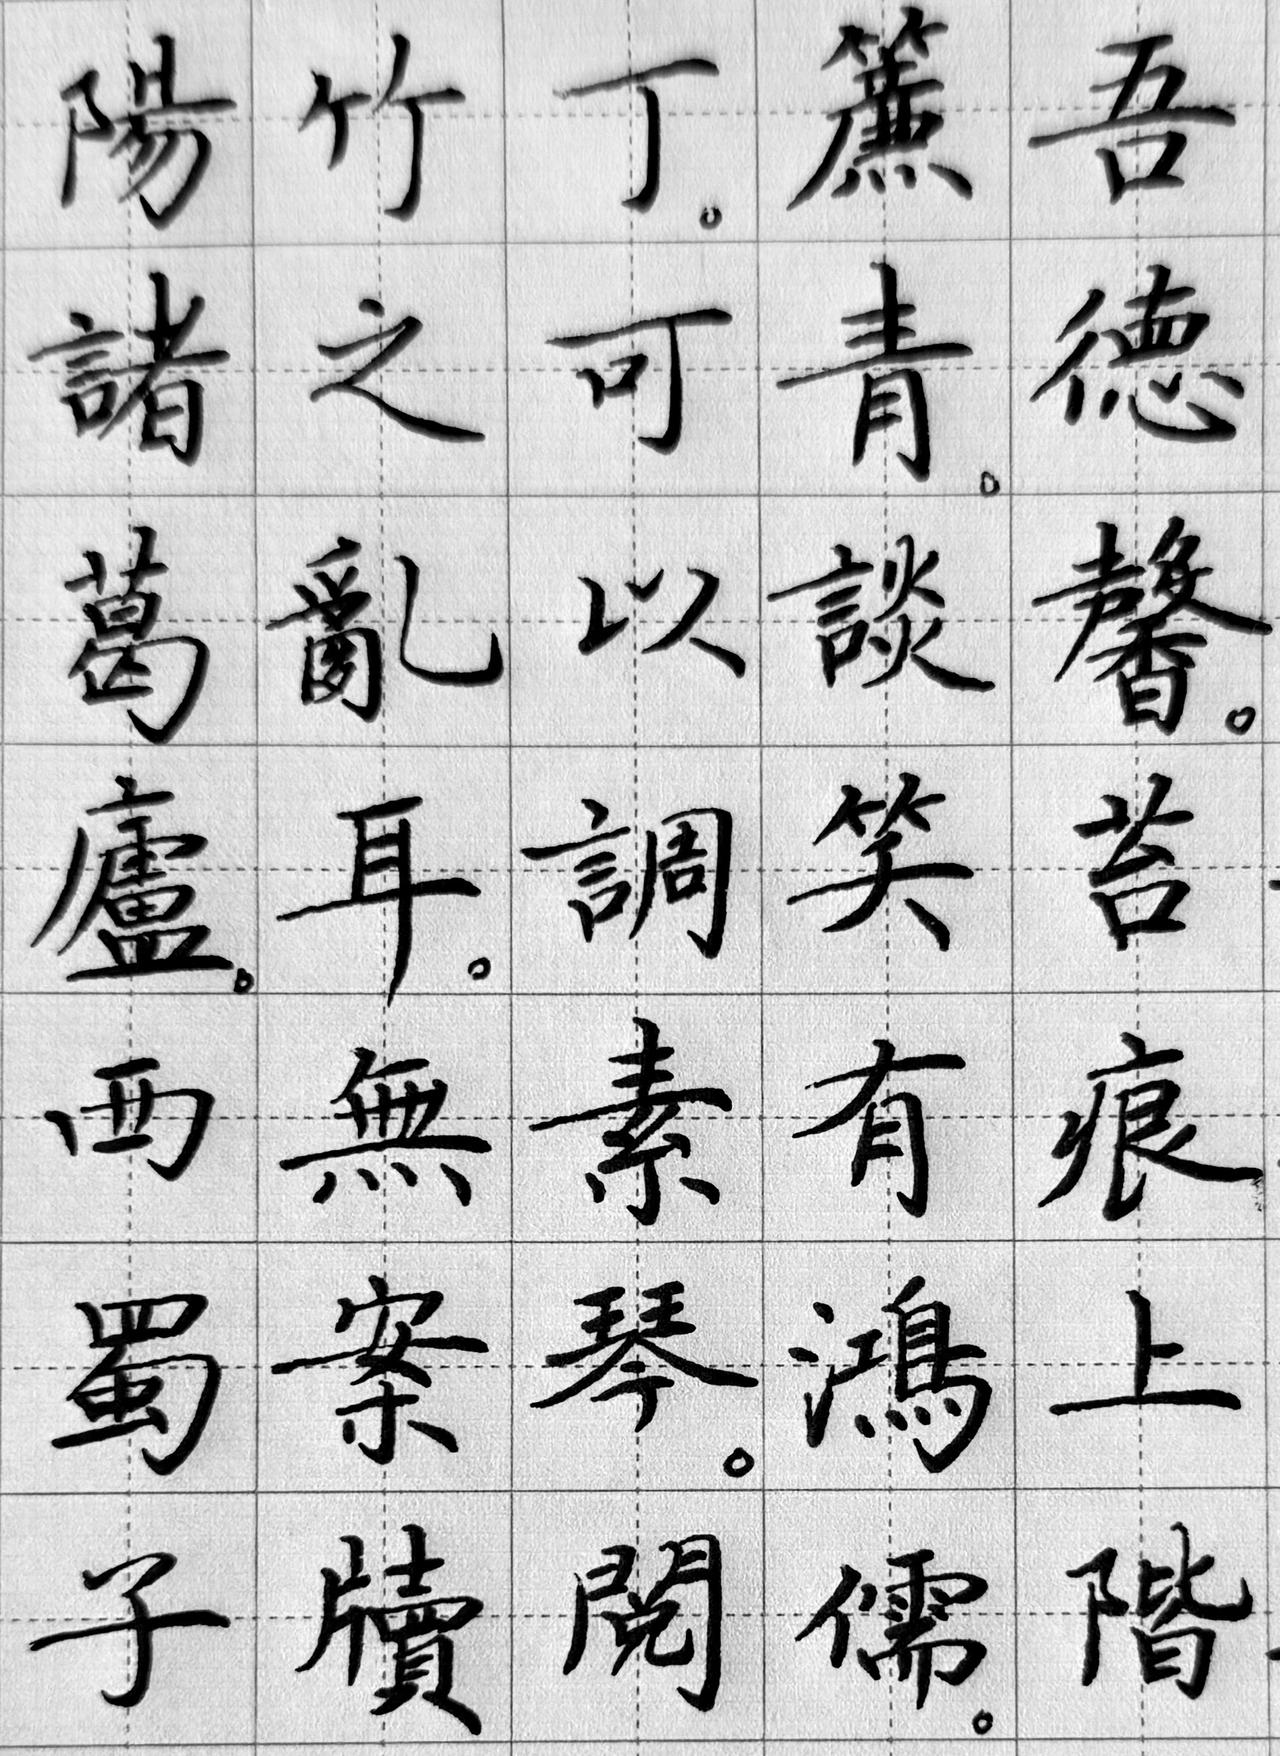 吾德馨。苔痕上階
簾青。談笑有鴻儒。
丁。可以調素琴。閱
竹之亂耳。無案牘
陽諸葛廬。西蜀子